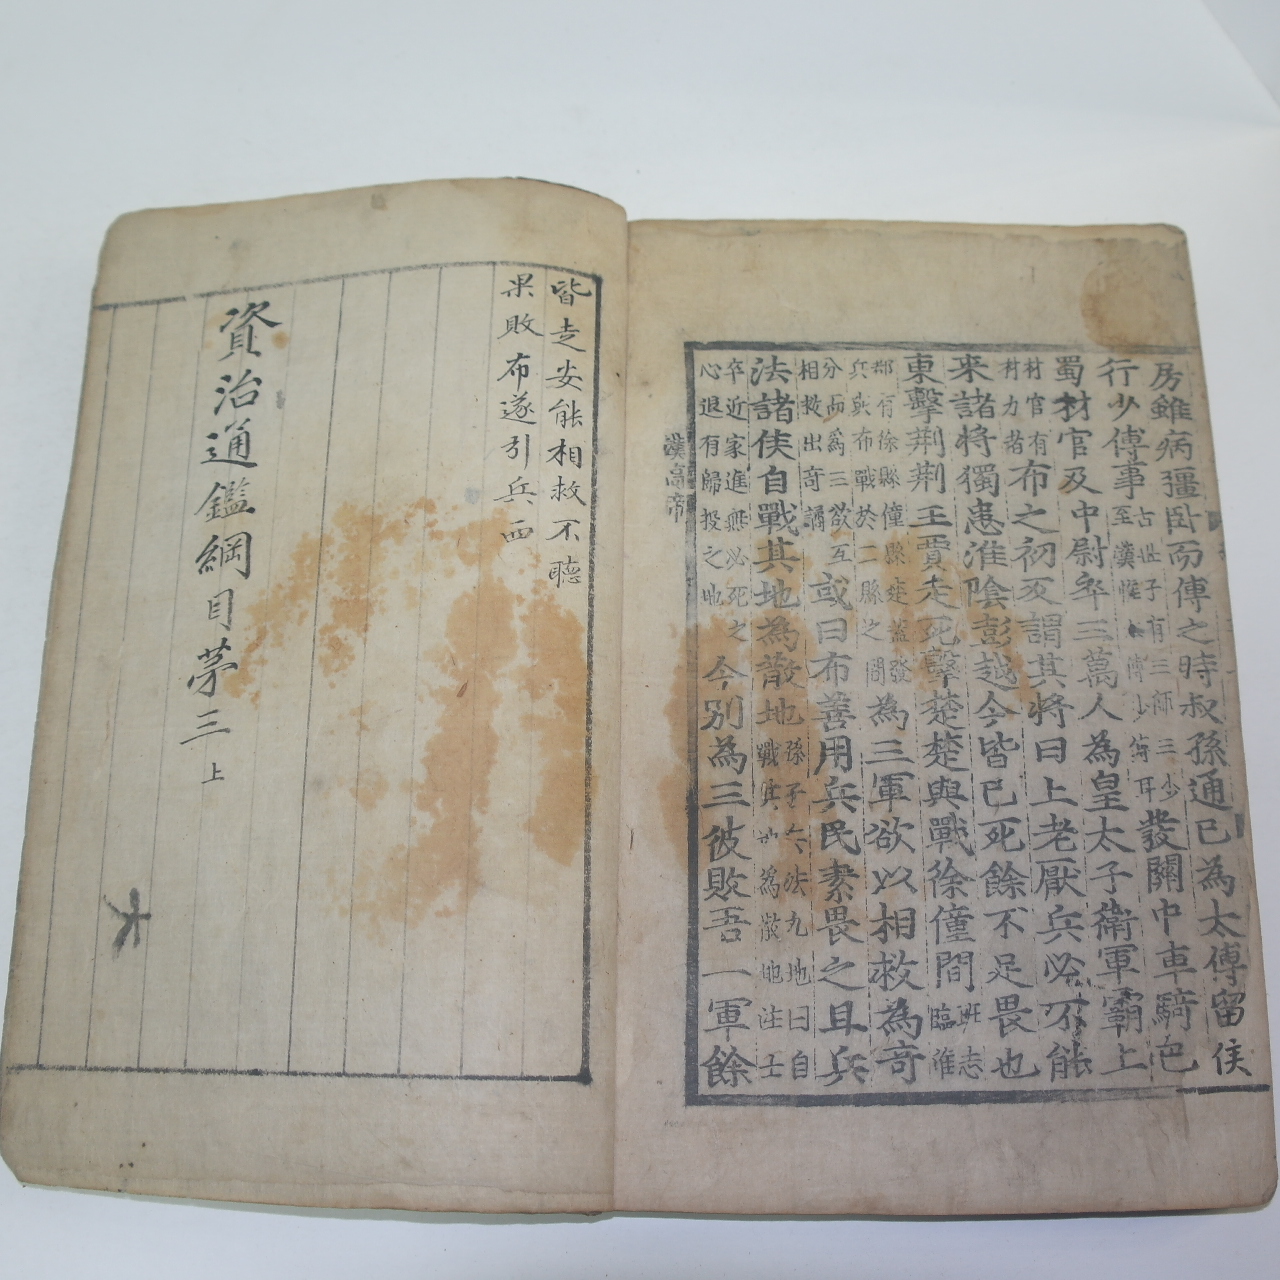 房雖病彊臥而傅之時叔孫通已為太傅留侯
行少傅事古世子有三師三少至漢惟傅少發關中車騎巴
蜀材官及中尉卒三萬人為皇太子衛軍霸上
材官有材力者布之初反謂其將曰上老厭兵必不能
来諸將獨患淮陰彭越今皆已死餘不足畏也
東擊荆荆王賈走死擊楚楚與戰徐僮間班志臨淮
郡有徐縣僮縣楚蓋發兵與布戰於二縣之間為三軍欲以相救為奇
分而為三欲互相救出奇譎或曰布善用兵民素畏之且兵
法諸侯自戰其地為散地孫子兵法九地曰自戰其地為散地注士
卒近家進無必死之心退有歸投之地今別為三彼敗吾一軍餘
漢高帝
皆走安能相救不聽
果敗布遂引兵西
資治通鑑綱目苐三上